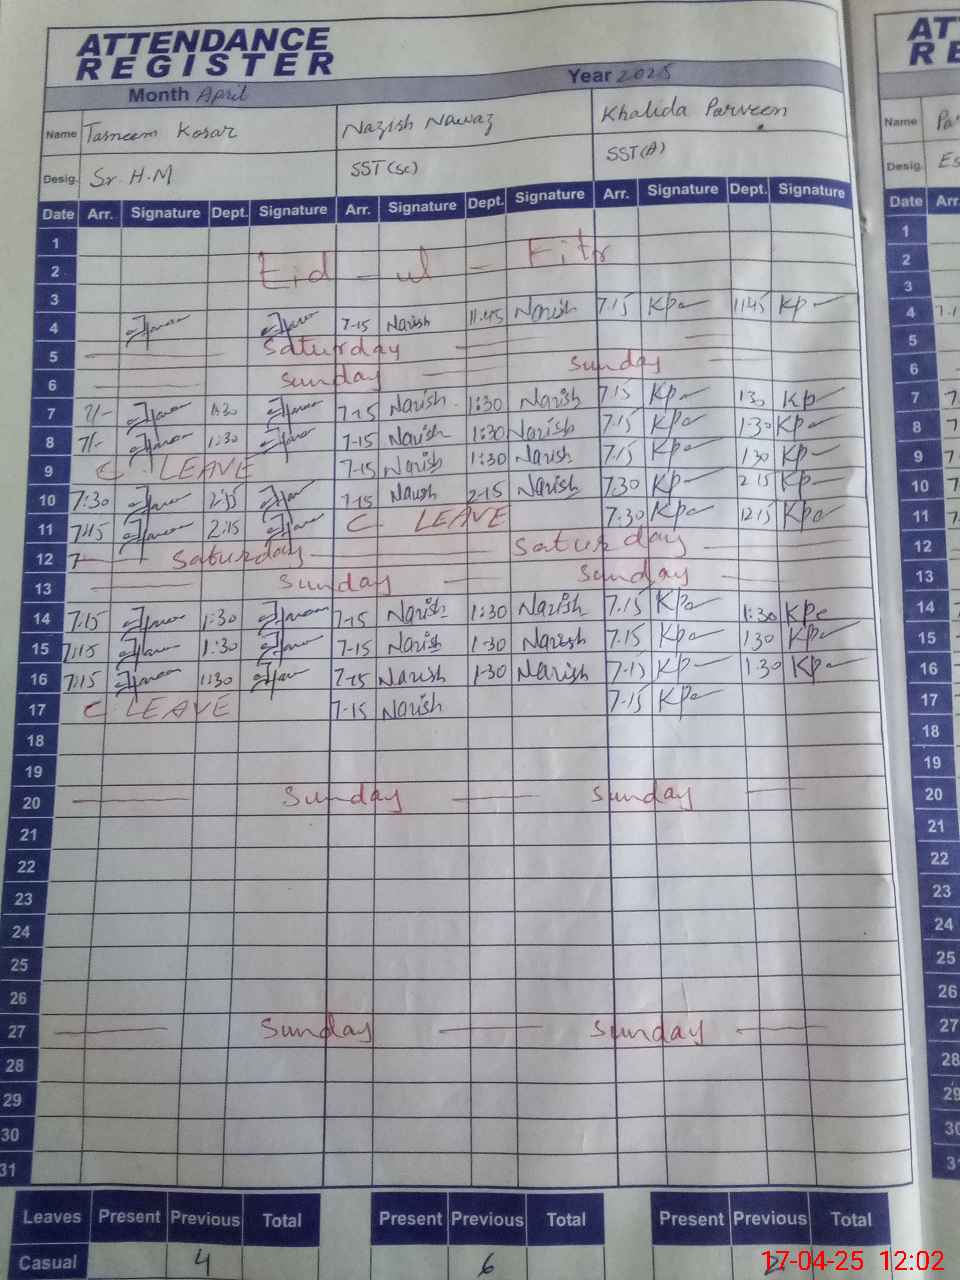 ATTENDANCE
REGISTER
Month April Year 2025
Name Tasneem Kosar Nazish Nawaz Khalida Parveen
Desig. Sr. H.M SST (SC) SST (A)
Date Arr. Signature Dept. Signature Arr. Signature Dept. Signature Arr. Signature Dept. Signature
1
2 Eid - ul - Fitr
3
4 7-15 Nazish 11.45 Nazish 7.15 Kp 11.45 Kp
5 Saturday
6 Sunday Sunday
7 7/- 1:30 7-15 Nazish 1:30 Nazish 7.15 Kp 1.30 Kp
8 7/- 1:30 7-15 Nazish 1:30 Nazish 7.15 Kp 1-30 Kp
9 C. LEAVE 7-15 Nazish 1:30 Nazish 7.15 Kp 1.30 Kp
10 7:30 2:15 7-15 Nazish 2-15 Nazish 7.30 Kp 2.15 Kp
11 7:15 2:15 C LEAVE 7:30 Kp 12.15 Kp
12 7 Saturday Saturday
13 Sunday Sunday
14 7.15 1:30 7-15 Nazish 1:30 Nazish 7.15 Kp 1:30 Kp
15 7:15 1:30 7-15 Nazish 1-30 Nazish 7.15 Kp 1.30 Kp
16 7:15 1:30 7-15 Nazish 1-30 Nazish 7-15 Kp 1.30 Kp
17 C LEAVE 7-15 Nazish 7-15 Kp
18
19
20 Sunday Sunday
21
22
23
24
25
26
27 Sunday Sunday
28
29
30
31
Leaves Present Previous Total Present Previous Total Present Previous Total
Casual 4 6 2
17-04-25 12:02
AT
RE
Name Pa
Desig. Es
Date Arr.
1
2
3
4
5
6
7
8
9
10
11
12
13
14
15
16
17
18
19
20
21
22
23
24
25
26
27
28
29
30
31